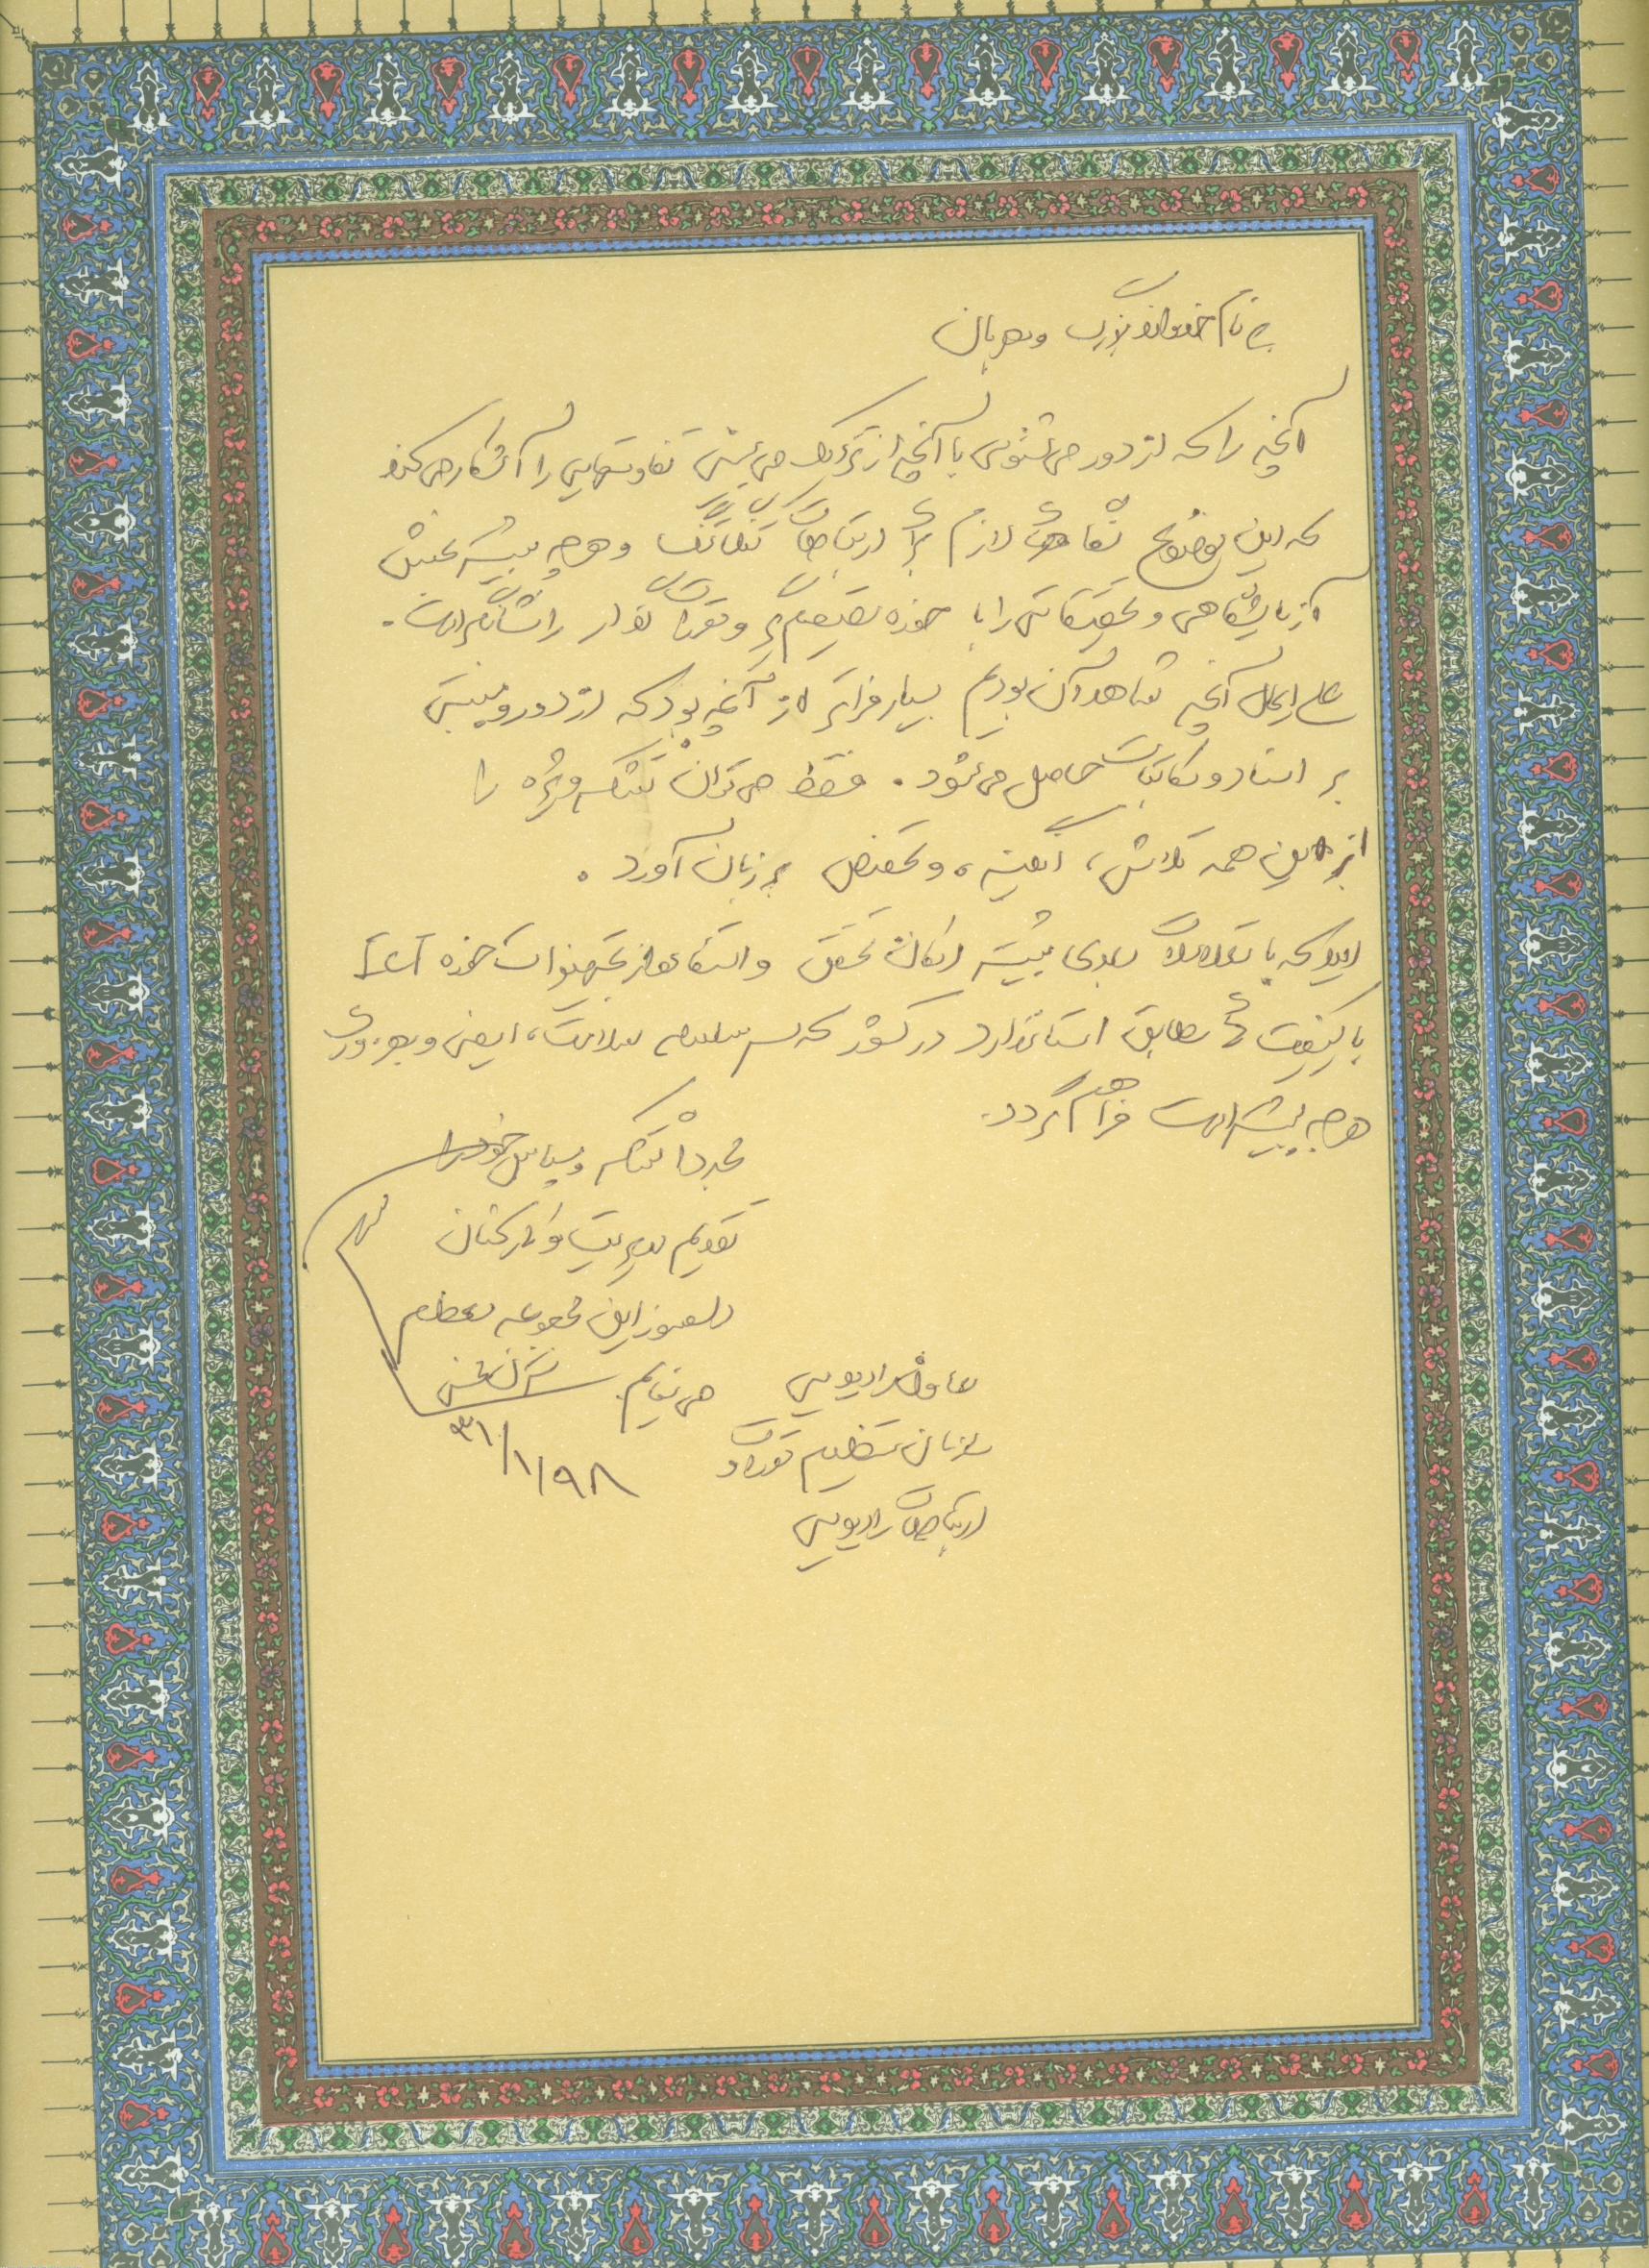 به نام خداوند بزرگ و مهربان
آنچه را که از دور می‌شنوی با آنچه از نزدیک می‌بینی تفاوتهایی را آشکار می‌کند
که این موضوع لازم برای ارتباطات تنگاتنگ و هرچه بیشتر بخش
آزمایشگاهی و تحقیقاتی را با حوزه تصمیم‌گیری و مقررات گذار را نشانگر است.
علی ایحال آنچه شاهد آن بودیم بسیار فراتر از آنچه بود که از دور و مبتنی
بر اسناد و مکاتبات حاصل می‌شود. فقط می‌توان تشکر ویژه را
از این همه تلاش، انگیزه، و تخصص بر زبان آورد.
امید که با تعاملات بعدی بیشتر امکان تحقق و استفاده از تجهیزات حوزه ICT
با کیفیت مطابق استاندارد در کشور که سلامت، ایمنی و بهره‌وری
هرچه بیشتر است فراهم گردد.
مجددا تشکر و سپاس خود را
تقدیم مدیریت و کارکنان
دلسوز این مجموعه معظم
می‌نمایم.
۹۸/۱/۳۱
معاونت رادیویی
سازمان تنظیم مقررات و
ارتباطات رادیویی